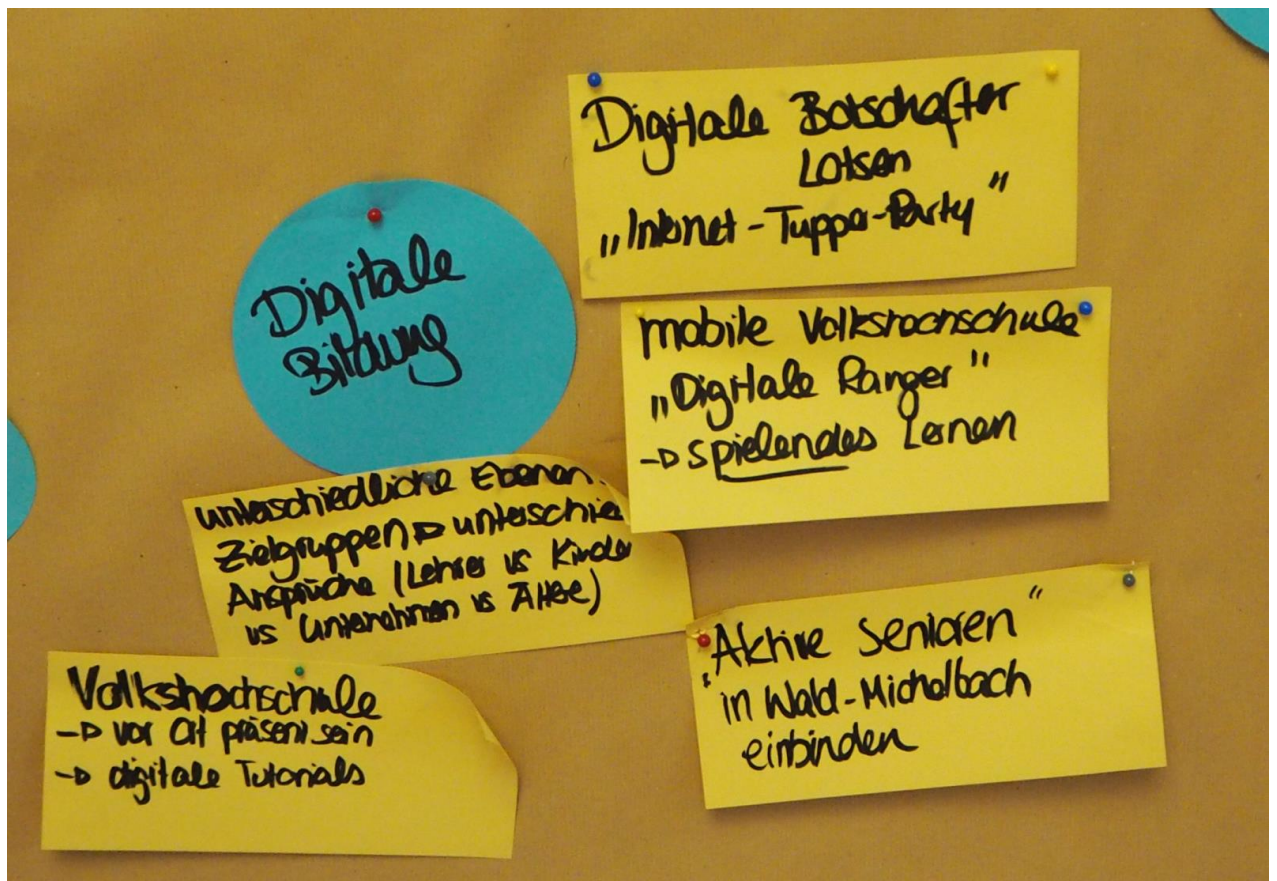 Digitale
Bildung
Digitale Botschafter
Lotsen
„Internet-Tupper-Party"
mobile Volkshochschule
„Digitale Ranger"
→ spielendes Lernen
unterschiedliche Ebenen
Zielgruppen → unterschie
Ansprüche (Lehrer vs Kinder
vs Unternehmen vs Ältere)
Volkshochschule
→ vor Ort präsent sein
→ digitale Tutorials
„Aktive Senioren"
in Wald-Michelbach
einbinden